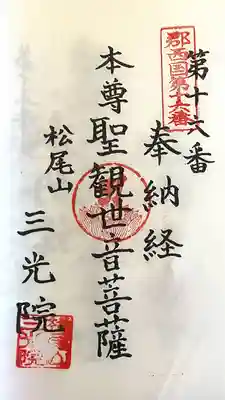 第十六番
郡西国第十六番
奉納経
本尊聖観世音菩薩
松尾山
三光院